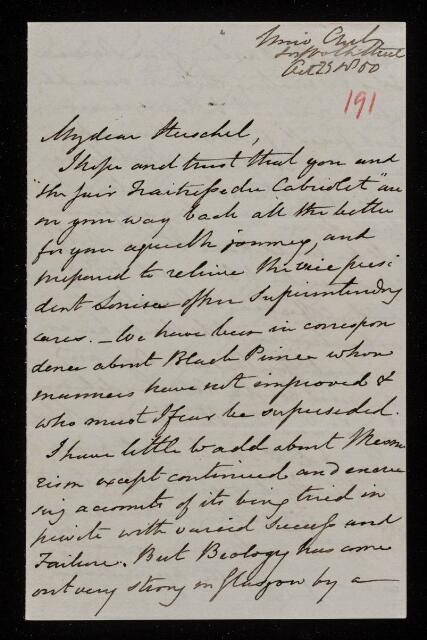 Club
Oct 25 1850
191
My dear Herschel,
I hope and trust that you and
"the fair Traitresse du Cabriolet" are
on your way back all the better
for your agreeable journey, and
prepared to relieve the vice presi
dent Louisa of her Superintending
cares. — We have been in correspon
dence about Black Prince whose
manners have not improved &
who must I fear be superseded.
I have little to add about Mesm
erism except continued and encrea
sing accounts of its being tried in
private with varied success and
Failure. But Biology has come
out very strong in Glasgow by a